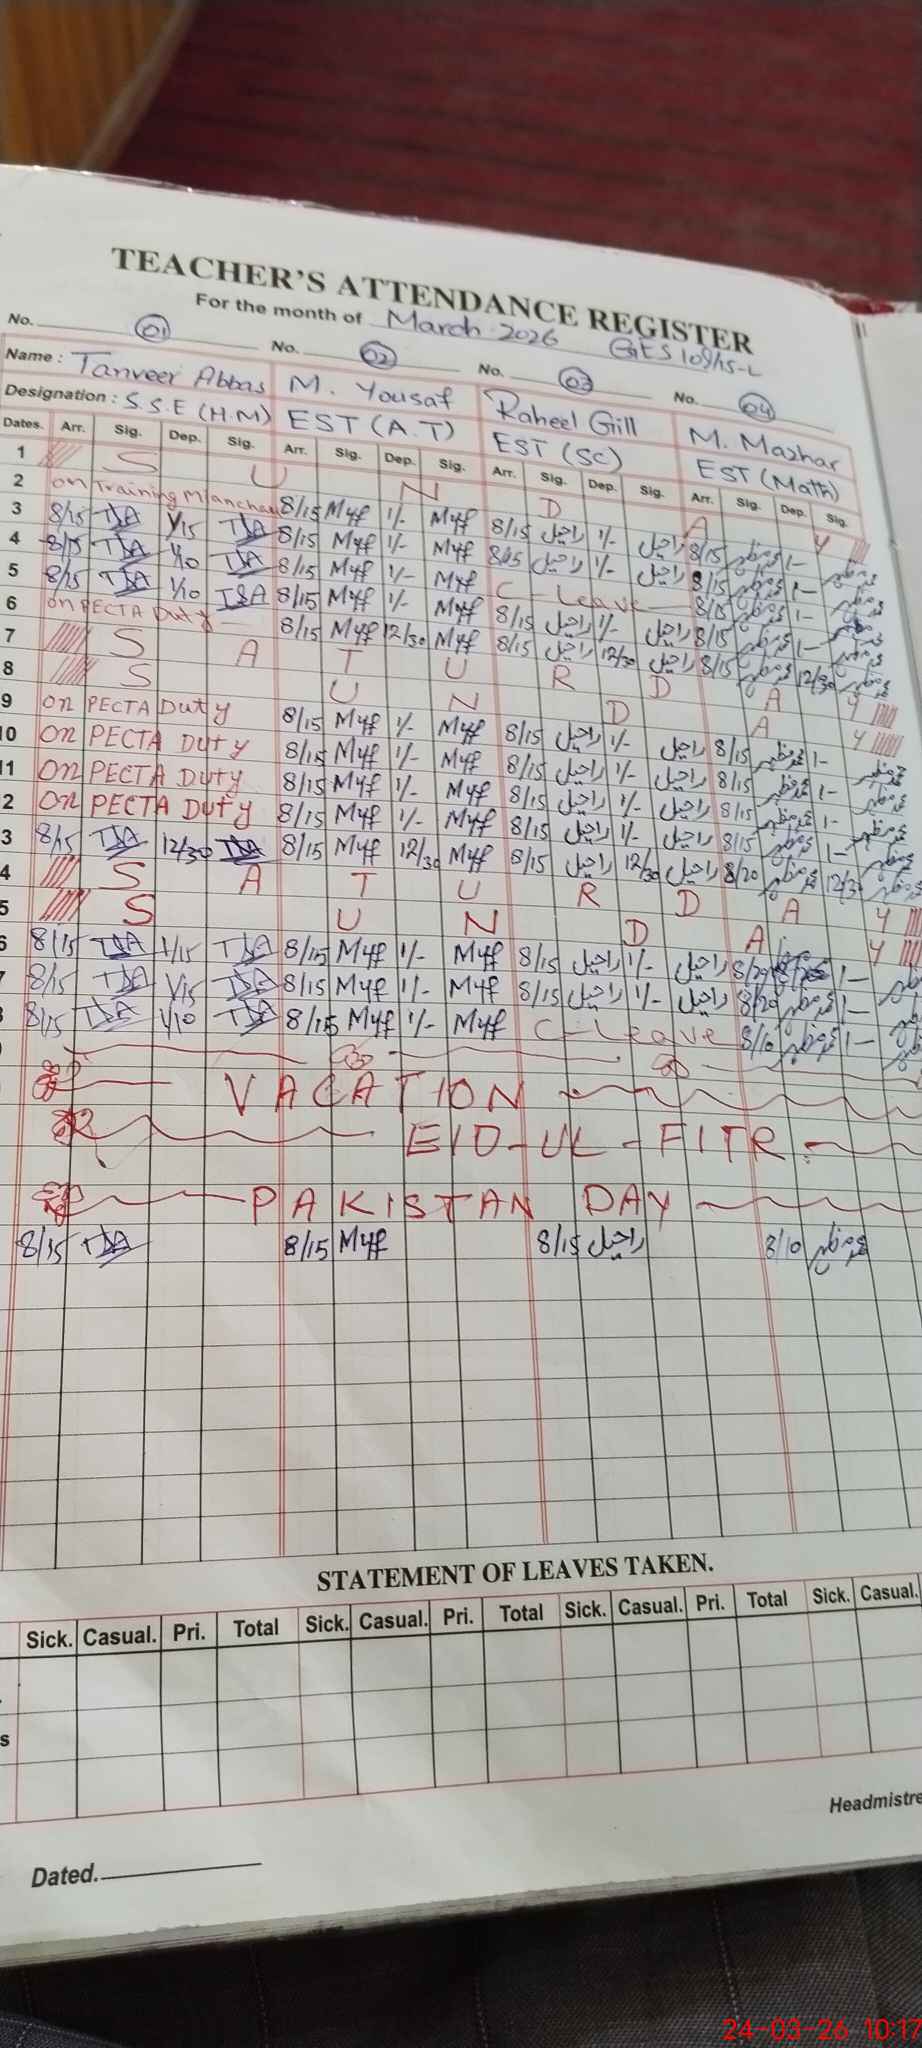 TEACHER'S ATTENDANCE REGISTER
For the month of March 2026 GES 109/15-L
No. 01 No. 02 No. 03 No. 04
Name : Tanveer Abbas M. Yousaf Raheel Gill M. Mazhar
Designation : S.S.E (H.M) EST (A.T) EST (SC) EST (Math)
Dates. Arr. Sig. Dep. Sig. Arr. Sig. Dep. Sig. Arr. Sig. Dep. Sig. Arr. Sig. Dep. Sig.
1 S U N D A Y
2 on Training 8/15 Myf 1/- Myf 8/15 راحیل 1/- راحیل 8/15 1-
3 8/15 TSA 1/15 TSA 8/15 Myf 1/- Myf 8/15 راحیل 1/- راحیل 8/15 1-
4 8/15 TSA 1/10 TSA 8/15 Myf 1/- Myf C-Leave 8/15 1-
5 8/15 TSA 1/10 TSA 8/15 Myf 1/- Myf 8/15 راحیل 1/- راحیل 8/15 1-
6 on PECTA Duty 8/15 Myf 12/30 Myf 8/15 راحیل 12/30 راحیل 8/15 12/30
7 S A T U R D A Y
8 S U N D A Y
9 on PECTA Duty 8/15 Myf 1/- Myf 8/15 راحیل 1/- راحیل 8/15 1-
10 on PECTA Duty 8/15 Myf 1/- Myf 8/15 راحیل 1/- راحیل 8/15 1-
11 on PECTA Duty 8/15 Myf 1/- Myf 8/15 راحیل 1/- راحیل 8/15 1-
2 on PECTA Duty 8/15 Myf 1/- Myf 8/15 راحیل 1/- راحیل 8/15 1-
3 8/15 TSA 12/30 TSA 8/15 Myf 12/30 Myf 8/15 راحیل 12/30 راحیل 8/20 12/30
4 S A T U R D A Y
5 S U N D A Y
6 8/15 TSA 1/15 TSA 8/15 Myf 1/- Myf 8/15 راحیل 1/- راحیل 1-
7 8/15 TSA 1/15 TSA 8/15 Myf 1/- Myf 8/15 راحیل 1/- راحیل 8/20 1-
8/15 TSA 1/10 TSA 8/15 Myf 1/- Myf C-Leave 8/10 1-
VACATION
EID-UL-FITR
PAKISTAN DAY
8/15 TSA 8/15 Myf 8/15 راحیل 8/10
STATEMENT OF LEAVES TAKEN.
Sick. Casual. Pri. Total Sick. Casual. Pri. Total Sick. Casual. Pri. Total Sick. Casual.
s
Headmistre
Dated.
24-03-26 10:17